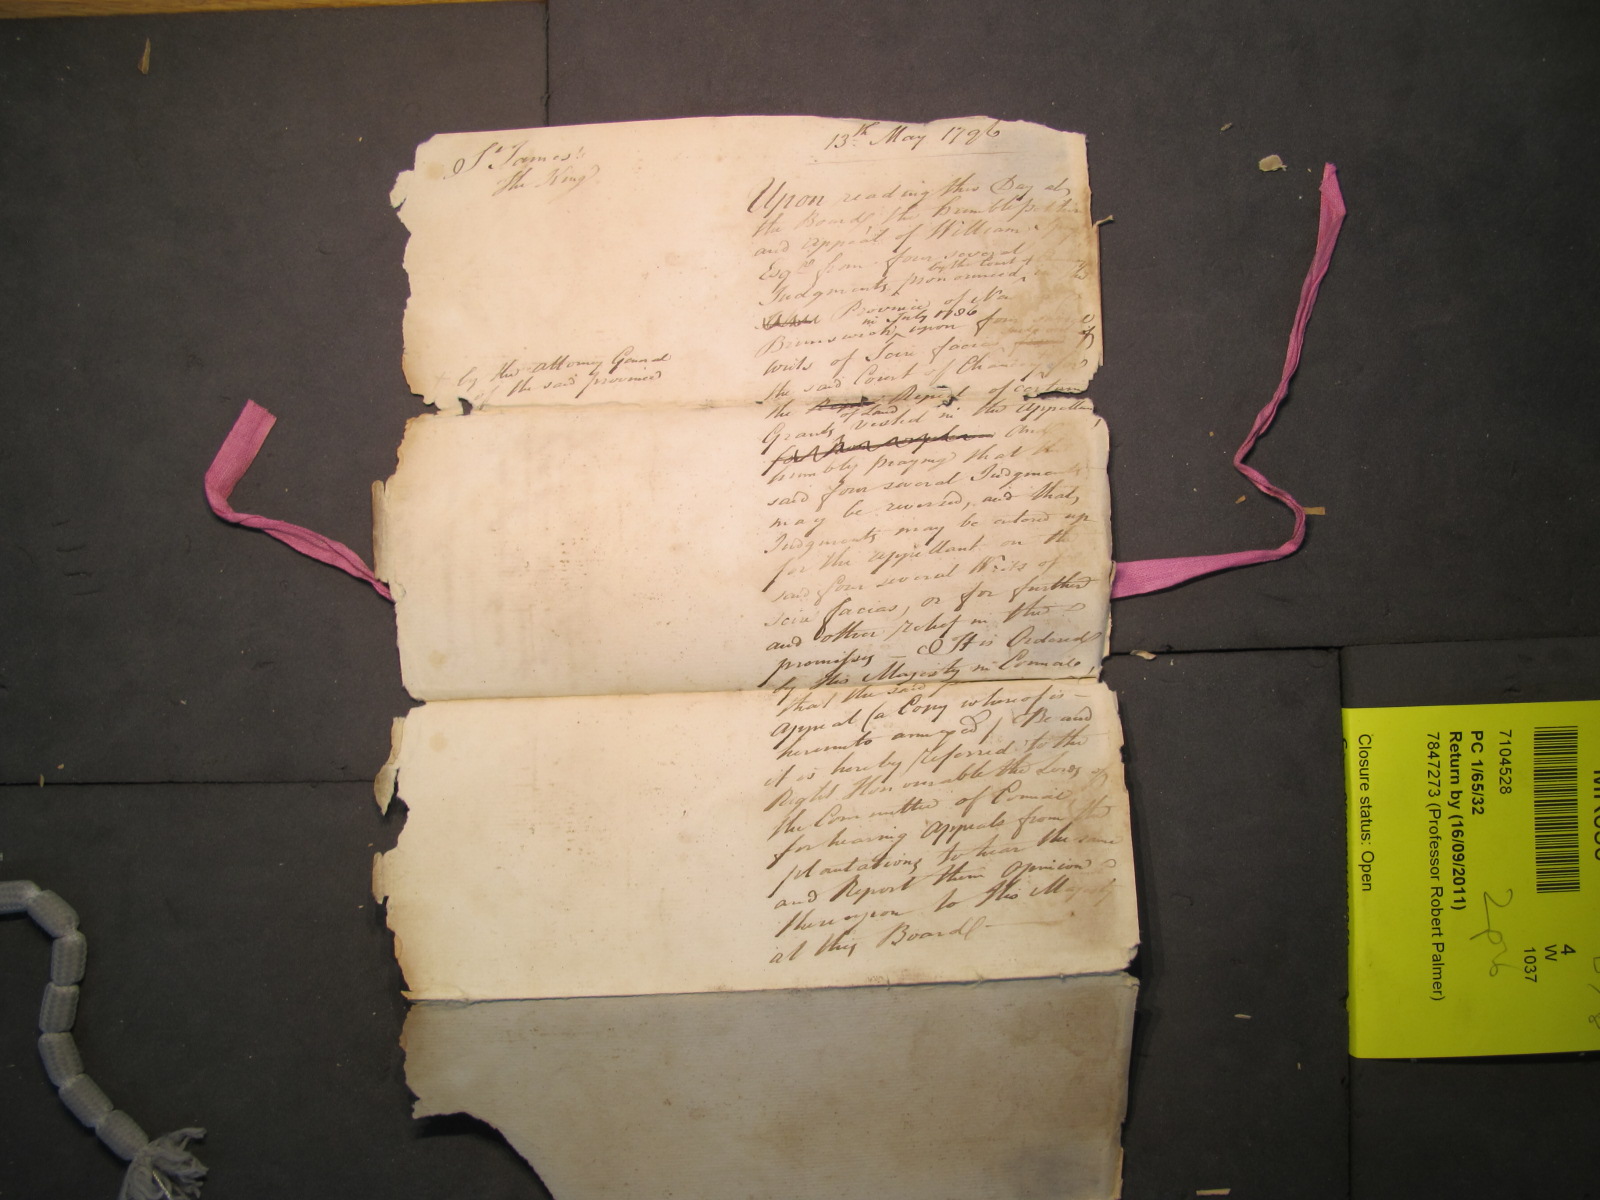 St James's
The King
13th May 1796
Upon reading this Day at
the Board the humble petition
and appeal of William
Esqr. from four several
by the Court of
Judgments pronounced
Province of
in July 1786
Brunswick upon four
writs of Scire facias
by the Attorney General
of the said province
the said Court of Chancery for
the Repeal of certain
of Land
Grants vested in the appellant
And
humbly praying that the
said four several Judgments
may be reversed, and that
Judgments may be entered up
for the appellant on the
said four several Writs of
scire facias, or for further
and other relief in the
premisses — It is Ordered
by His Majesty in Council,
that the said
appeal (a Copy whereof is
hereunto annexed) Be and
it is hereby referred to the
Right Honourable the Lords of
the Committee of Council
for hearing Appeals from the
plantations to hear the same
and Report their Opinion
thereupon to His Majesty
at this Board —
7104528
PC 1/65/32
Return by (16/09/2011)
7847273 (Professor Robert Palmer)
Closure status: Open
4
W
1037